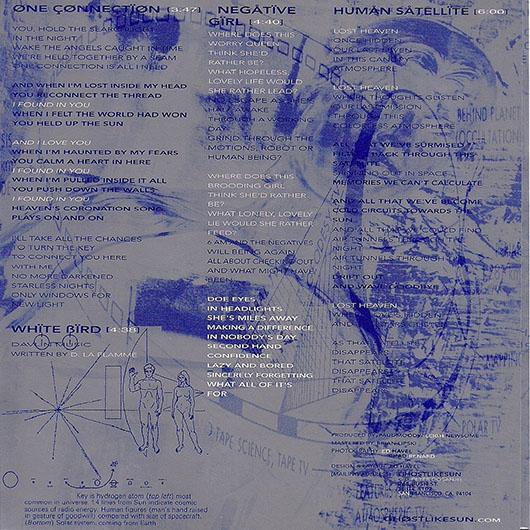 ONE CONNECTION [3:47]
YOU, HOLD THE SEARCHLIGHT
IN THE NIGHT
WAKE THE ANGELS CAUGHT IN TIME
WE'RE HELD TOGETHER BY A SEAM
ONE CONNECTION IS ALL I NEED
AND WHEN I'M LOST INSIDE MY HEAD
YOU RECONNECT THE THREAD
I FOUND IN YOU
WHEN I FELT THE WORLD HAD WON
YOU HELD UP THE SUN
AND I LOVE YOU
WHEN I'M HAUNTED BY MY FEARS
YOU CALM A HEART IN HERE
I FOUND IN YOU
WHEN I'M PULLED INSIDE IT ALL
YOU PUSH DOWN THE WALLS
I FOUND IN YOU
HEAVEN'S CORONATION SONG
PLAYS ON AND ON
I'LL TAKE ALL THE CHANCES
TO TURN THE KEY
TO CONNECT YOU HERE
WITH ME
NO MORE DARKENED
STARLESS NIGHTS
ONLY WINDOWS FOR
NEW LIGHT
WHITE BIRD [4:38]
DAVLIN MUSIC
WRITTEN BY D. LA FLAMME
Key is hydrogen atom (top left) most
common in universe. 14 lines from Sun indicate cosmic
sources of radio energy. Human figures (man's hand raised
in gesture of goodwill) compared with size of spacecraft.
(Bottom) Solar system, coming from Earth
NEGATIVE
GIRL [4:40]
WHERE DOES THIS
WORRY QUEEN
THINK SHE'D
RATHER BE?
WHAT HOPELESS,
LOVELY LIFE WOULD
SHE RATHER LEAD?
NO ESCAPE AS THEY
HALF WAKE
THROUGH A WORKING
DAY
GRIND THROUGH THE
MOTIONS, ROBOT OR
HUMAN BEING?
WHERE DOES THIS
BROODING GIRL
THINK SHE'D RATHER
BE?
WHAT LONELY, LOVELY
LIE WOULD SHE RATHER
FEED?
6 AM AND THE NEGATIVES
WILL BEING AGAIN
ALL ABOUT CHECKING OUT
AND WHAT MIGHT HAVE
BEEN
DOE EYES
IN HEADLIGHTS
SHE'S MILES AWAY
MAKING A DIFFERENCE
IN NOBODY'S DAY
SECOND HAND
CONFIDENCE
LAZY AND BORED
SINCERELY FORGETTING
WHAT ALL OF IT'S
FOR
TAPE SCIENCE, TAPE TV
HUMAN SATELLITE [6:00]
LOST HEAVEN
ONCE HIDDEN
OUR LAST
IN THIS
ATMOSPHERE
LOST HEAVEN
THROUGH THIS
COLORLESS ATMOSPHERE
ALL THAT WE'VE SURMISED
BACK THROUGH THIS
SATELLITE
OUT IN SPACE
MEMORIES WE CAN'T CALCULATE
AND ALL THAT WE'VE BECOME
COLD CIRCUITS TOWARDS THE
SUN
AND ALL THAT WE COULD FIND
AIR TUNNELS
NIGHT
AIR TUNNELS THROUGH THE
NIGHT
DRIFT OUT
AND WAVE GOODBYE
LOST HEAVEN
HIDDEN
AND
AS THAT SATELLITE
DISAPPEARS
THAT SATELLITE
DISAPPEARS
THAT SATELLITE
DISAPPEARS
BEHIND PLANET
POLAR TV
PRODUCED BY
MASTERED BY BRIAN LIPSKI
ED HAVEL
94104
GHOSTLIKESUN.COM